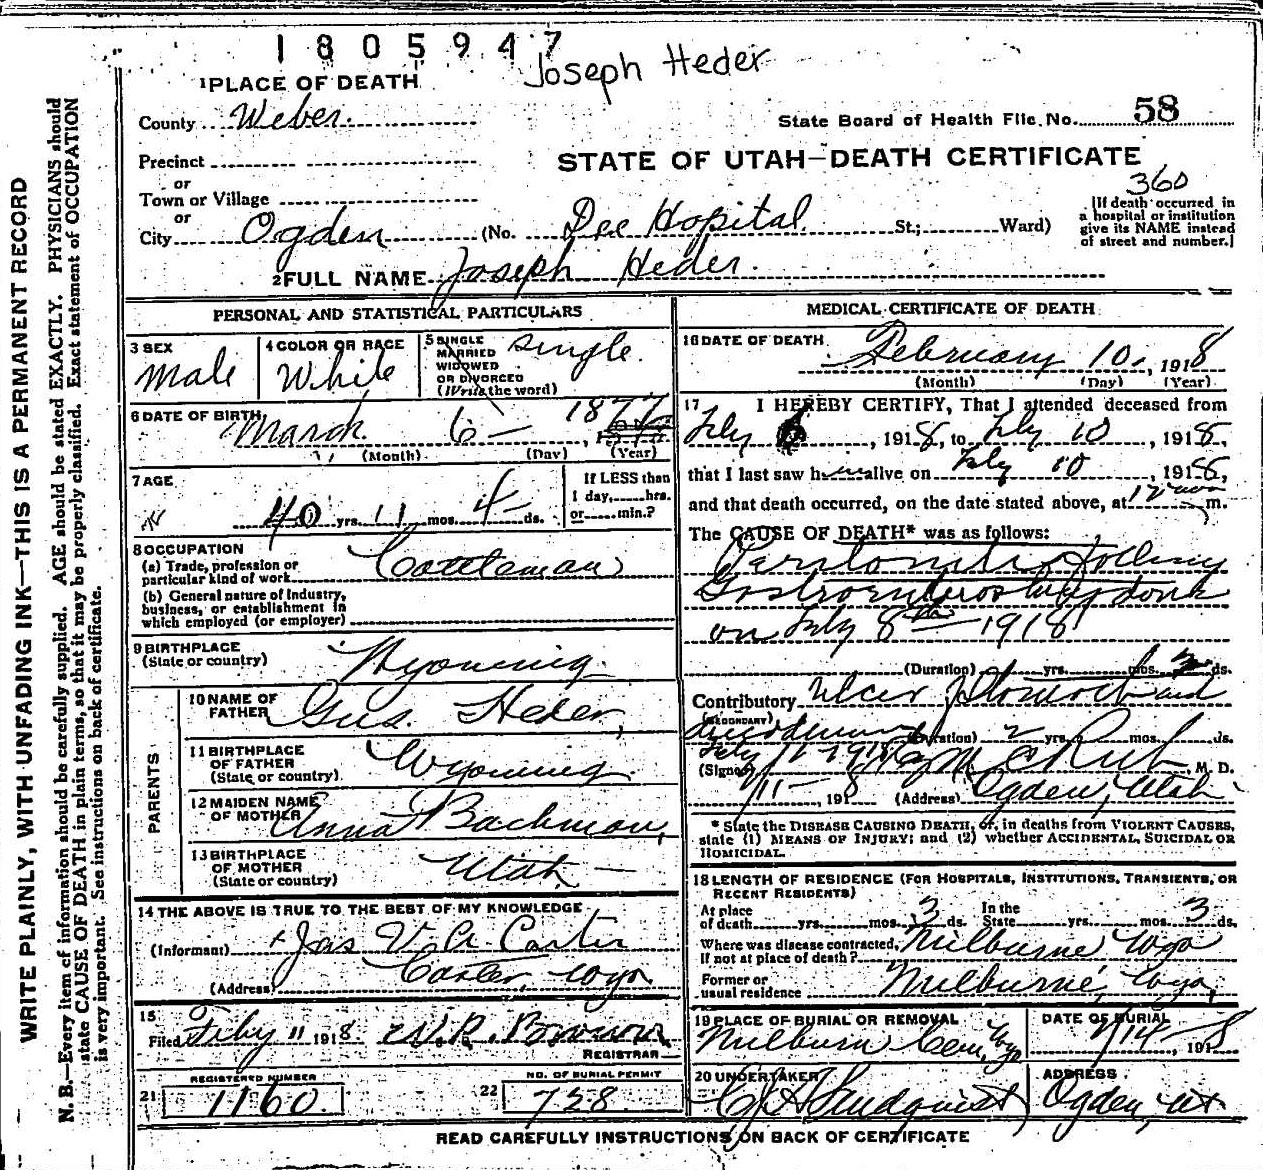 1805947
Joseph Heder
1 PLACE OF DEATH
County Weber.
State Board of Health File No. 58
Precinct
STATE OF UTAH—DEATH CERTIFICATE
or
Town or Village
360
or
City Ogden (No. Dee Hopital. St.; Ward)
[If death occurred in
a hospital or institution
give its NAME instead
of street and number.]
2 FULL NAME Joseph Heder.
PERSONAL AND STATISTICAL PARTICULARS
3 SEX
Male
4 COLOR OR RACE
White
5 SINGLE
MARRIED
WIDOWED
OR DIVORCED
(Write the word)
single.
6 DATE OF BIRTH
March 6 — 1877
(Month) (Day) (Year)
7 AGE
40 yrs. 11 mos. 4 ds.
If LESS than
1 day, hrs.
or min.?
8 OCCUPATION
(a) Trade, profession or
particular kind of work Cattleman
(b) General nature of Industry,
business, or establishment in
which employed (or employer)
9 BIRTHPLACE
(State or country) Wyoming.
PARENTS
10 NAME OF
FATHER Gus. Heder,
11 BIRTHPLACE
OF FATHER
(State or country) Wyoming.
12 MAIDEN NAME
OF MOTHER Anna Bachman,
13 BIRTHPLACE
OF MOTHER
(State or country) Utah —
14 THE ABOVE IS TRUE TO THE BEST OF MY KNOWLEDGE
(Informant) Jas V. A. Carter
(Address) Carter, Wyo
15
Filed Feby 11 1918
REGISTRAR
REGISTERED NUMBER
21 1160
NO. OF BURIAL PERMIT
22 728
MEDICAL CERTIFICATE OF DEATH
16 DATE OF DEATH
February 10, 1918
(Month) (Day) (Year)
17 I HEREBY CERTIFY, That I attended deceased from
Feby 6, 1918, to Feby 10, 1918,
that I last saw him alive on Feby 10 1918,
and that death occurred, on the date stated above, at 12 noon m.
The CAUSE OF DEATH* was as follows:
Peritonitis following
done
on Feby 8th 1918
(Duration) yrs. mos. 2 ds.
Contributory Ulcer Stomach and
(SECONDARY)
duodenum (Duration) 2 yrs. mos. ds.
Feby 11-1918
(Signed) M. D.
2/11—, 1918 (Address) Ogden, Utah
* State the DISEASE CAUSING DEATH, or, in deaths from VIOLENT CAUSES,
state (1) MEANS OF INJURY; and (2) whether ACCIDENTAL, SUICIDAL OR
HOMICIDAL.
18 LENGTH OF RESIDENCE (FOR HOSPITALS, INSTITUTIONS, TRANSIENTS, OR
RECENT RESIDENTS)
At place
of death yrs. mos. 3 ds. In the
State yrs. mos. 3 ds.
Where was disease contracted,
If not at place of death? Milburne Wyo
Former or
usual residence Milburne, Wyo,
19 PLACE OF BURIAL OR REMOVAL
Milburn Cem, Wyo
DATE OF BURIAL
2/14—, 1918
20 UNDERTAKER
ADDRESS
Ogden, Ut
READ CAREFULLY INSTRUCTIONS ON BACK OF CERTIFICATE
WRITE PLAINLY, WITH UNFADING INK—THIS IS A PERMANENT RECORD
N. B.—Every item of information should be carefully supplied. AGE should be stated EXACTLY. PHYSICIANS should
state CAUSE OF DEATH in plain terms, so that it may be properly classified. Exact statement of OCCUPATION
is very important. See instructions on back of certificate.